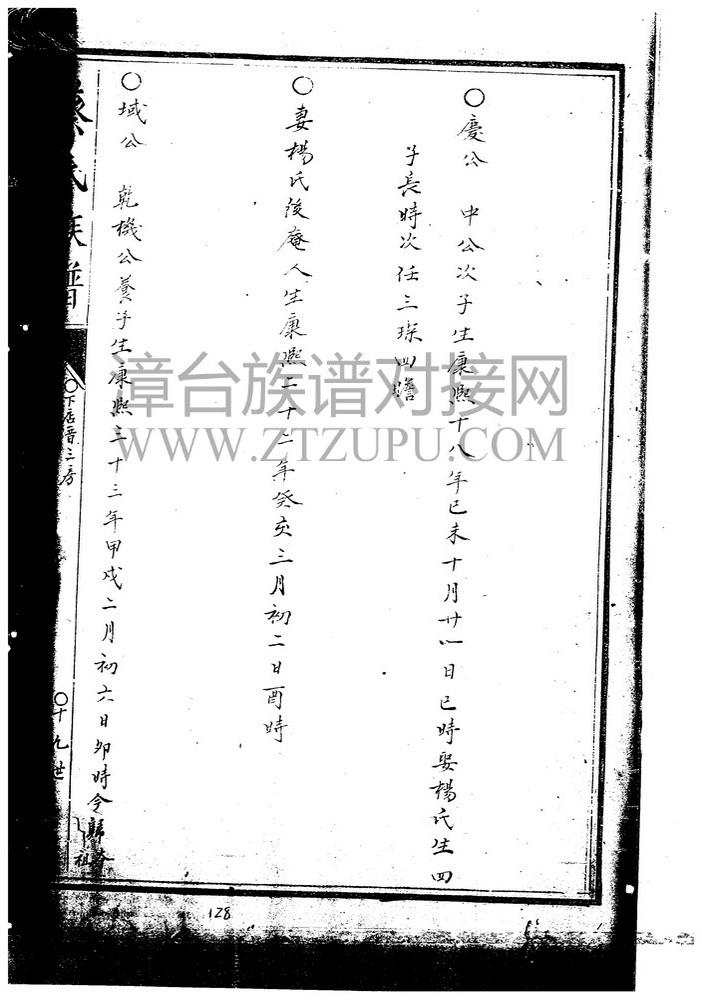 ○慶公 中公次子生康熙十八年己未十月廿八日巳時娶楊氏生四
子長時次任三琛四瞻
○妻楊氏後庵人生康熙二十二年癸亥三月初二日酉時
○域公 乾機公養子生康熙三十三年甲戌二月初六日卯時令歸
祖
蔡氏族譜
○下店晋三房
○十九世
128
漳台族谱对接网
WWW.ZTZUPU.COM